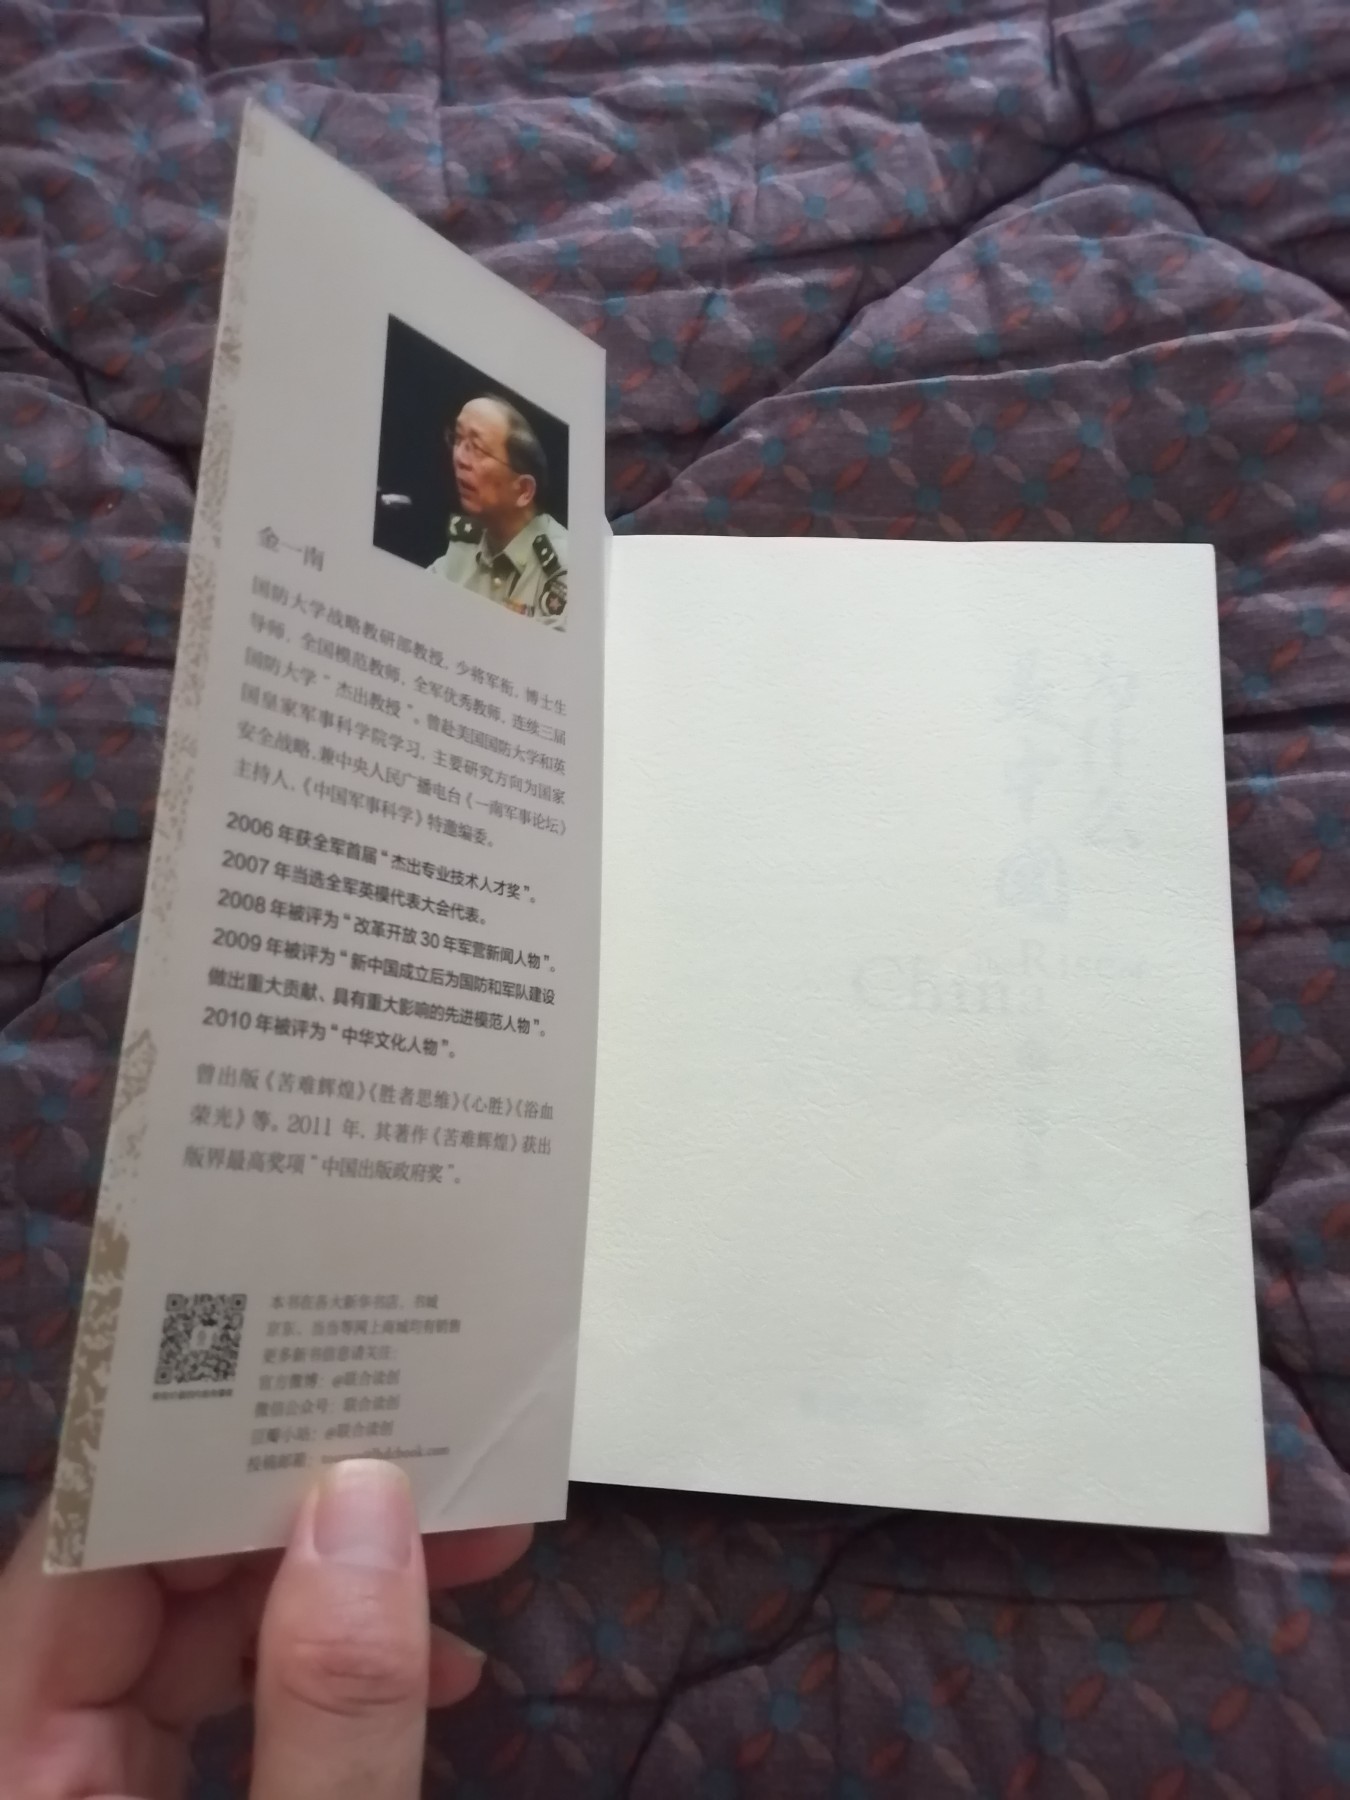 金一南
国防大学战略教研部教授，少将军衔，博士生
导师，全国模范教师，全军优秀教师，连续三届
国防大学“杰出教授”。曾赴美国国防大学和英
国皇家军事科学院学习，主要研究方向为国家
安全战略，兼中央人民广播电台《一南军事论坛》
主持人，《中国军事科学》特邀编委。
2006 年获全军首届“杰出专业技术人才奖”。
2007 年当选全军英模代表大会代表。
2008 年被评为“改革开放 30 年军营新闻人物”。
2009 年被评为“新中国成立后为国防和军队建设
做出重大贡献、具有重大影响的先进模范人物”。
2010 年被评为“中华文化人物”。
曾出版《苦难辉煌》《胜者思维》《心胜》《浴血
荣光》等。2011 年，其著作《苦难辉煌》获出
版界最高奖项“中国出版政府奖”。
本书在各大新华书店、书城
京东、当当等网上商城均有销售
更多新书信息请关注：
官方微博：@联合读创
微信公众号：联合读创
豆瓣小站：@联合读创
投稿邮箱：
China